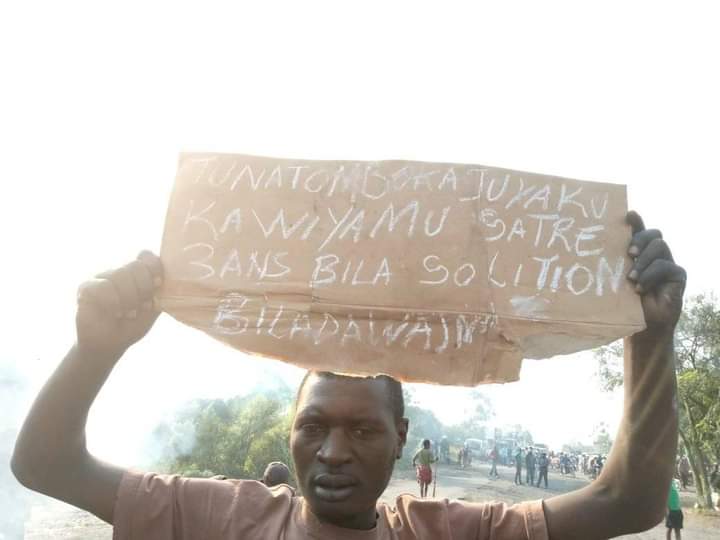 TUNATOMBOKA JUYAKU
KAWIYAMU SATRE
3ANS BILA SOLITION
BILADAWA